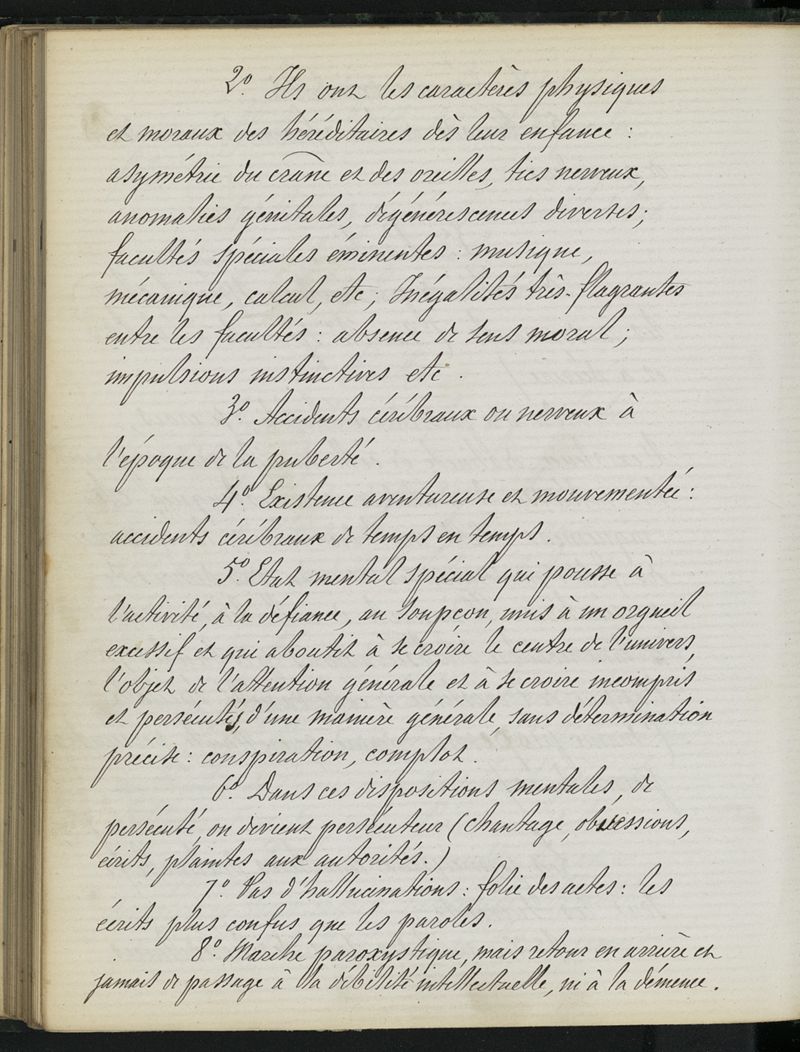 2º. Ils ont les caractères physiques
et moraux des héréditaires dès leur enfance :
asymétrie du crâne et des oreilles, tics nerveux,
anomalies génitales, dégénérescences diverses ;
facultés spéciales éminentes : musique,
mécanique, calcul, etc ; Inégalités très-flagrantes
entre les facultés : absence de sens moral ;
impulsions instinctives etc.
3º. Accidents cérébraux ou nerveux à
l'époque de la puberté.
4º. Existence aventureuse et mouvementée :
accidents cérébraux de temps en temps.
5º. Etat mental spécial qui pousse à
l'activité, à la défiance, au soupçon, unis à un orgueil
excessif et qui aboutit à se croire le centre de l'univers,
l'objet de l'attention générale et à se croire incompris
et persécutés, d'une manière générale, sans détermination
précise : conspiration, complot.
6º. Dans ces dispositions mentales, de
persécuté, on devient persécuteur (chantage, obsessions,
écrits, plaintes aux autorités.)
7º. Pas d'hallucinations : folie des actes : les
écrits plus confus que les paroles.
8º. Marche paroxystique, mais retour en arrière et
jamais de passage à la débilité intellectuelle, ni à la démence.